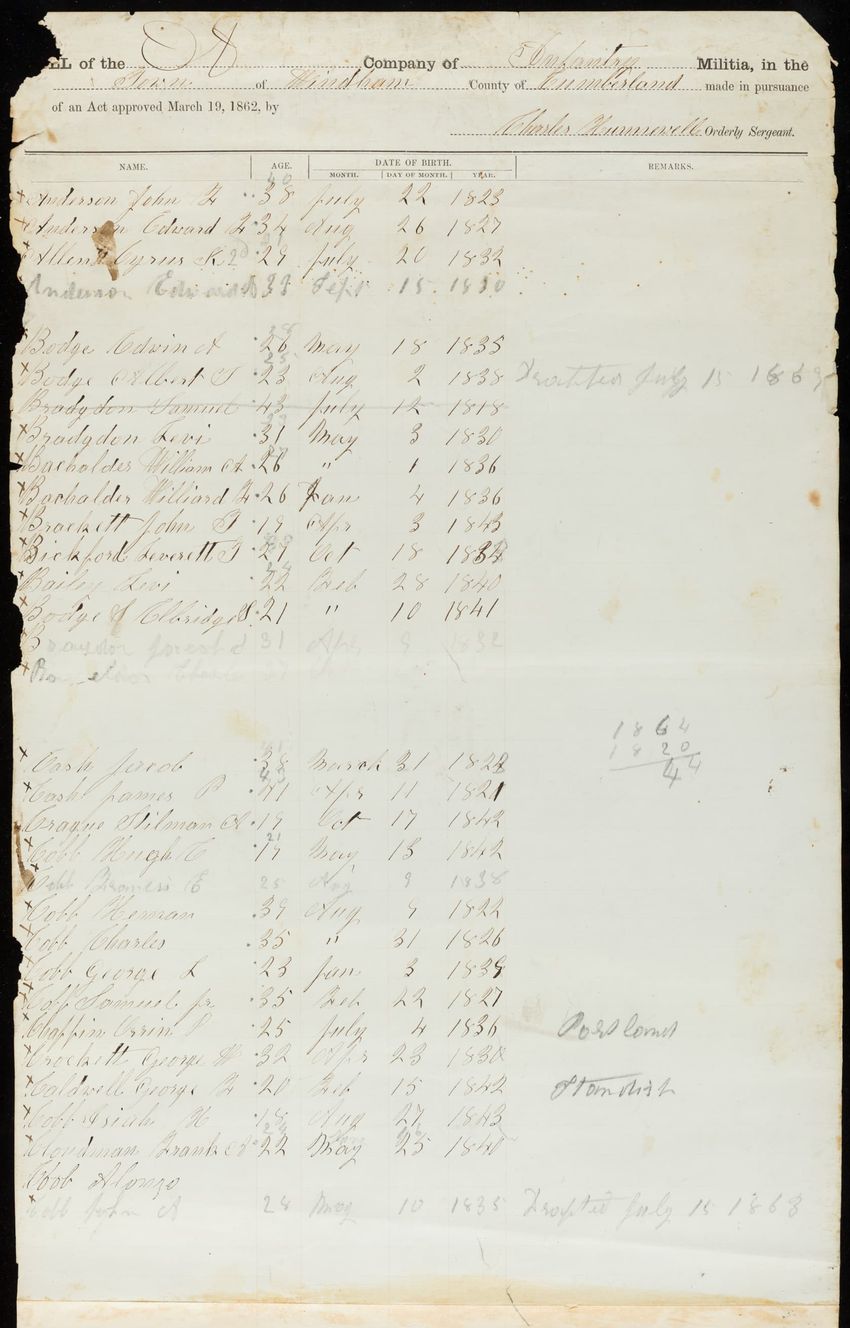 LL of the A Company of Infantry Militia, in the
Town of Windham County of Cumberland made in pursuance
of an Act approved March 19, 1862, by
Charles Hunnewell Orderly Sergeant.
NAME. AGE. DATE OF BIRTH. REMARKS.
MONTH. DAY OF MONTH. YEAR.
40
x Anderson John F 38 July 22 1823
x Anderson Edward F 34 Aug 26 1827
x Allen Cyrus K 2d 29 July 20 1832
Anderson Edward 33 Sept 15 1830
x Bodge Edwin A 26 May 18 1835
25
x Bodge Albert T 23 Aug 2 1838 Drafted July 15 1863
Bradgdon Samuel 43 July 12 1818
x Bradgdon Levi 31 May 3 1830
x Bacholder William A 26 " 1 1836
x Bachalder Williard F 26 Jan 4 1836
x Brackett John T 19 Apr 3 1843
x Bickford Leverett T 29 Oct 18
24
x Bailey Levi 22 Feb 28 1840
x Bodge Elbridge S 21 " 10 1841
31 Apr 9 1832
1864
1820
44
x Cash Jacob 38 March 31
43
x Cash James P 41 Apr 11 1821
Crague Stilman A 19 Oct 17 1842
21
x Cobb Hugh C 19 May 13 1842
x Cobb E 25 Aug 9 1838
x Cobb Heman 39 Aug 9 1822
x Cobb Charles 35 " 31 1826
x Cobb George L 23 Jan 3 1839
x Coff Samuel jr 35 Feb 22 1827
x Chaffin Orrin P 25 July 4 1836 Portland
x Crockett George W 32 Apr 23 1830
x Caldwell George F 20 Feb 15 1842 Standish
x Cobb Isiah H 18 Aug 27 1843
24
x Cloudman Frank A 22 May 25 1840
x Cobb Alonzo
x Cobb John A 28 May 10 1835 Drafted July 15 1863